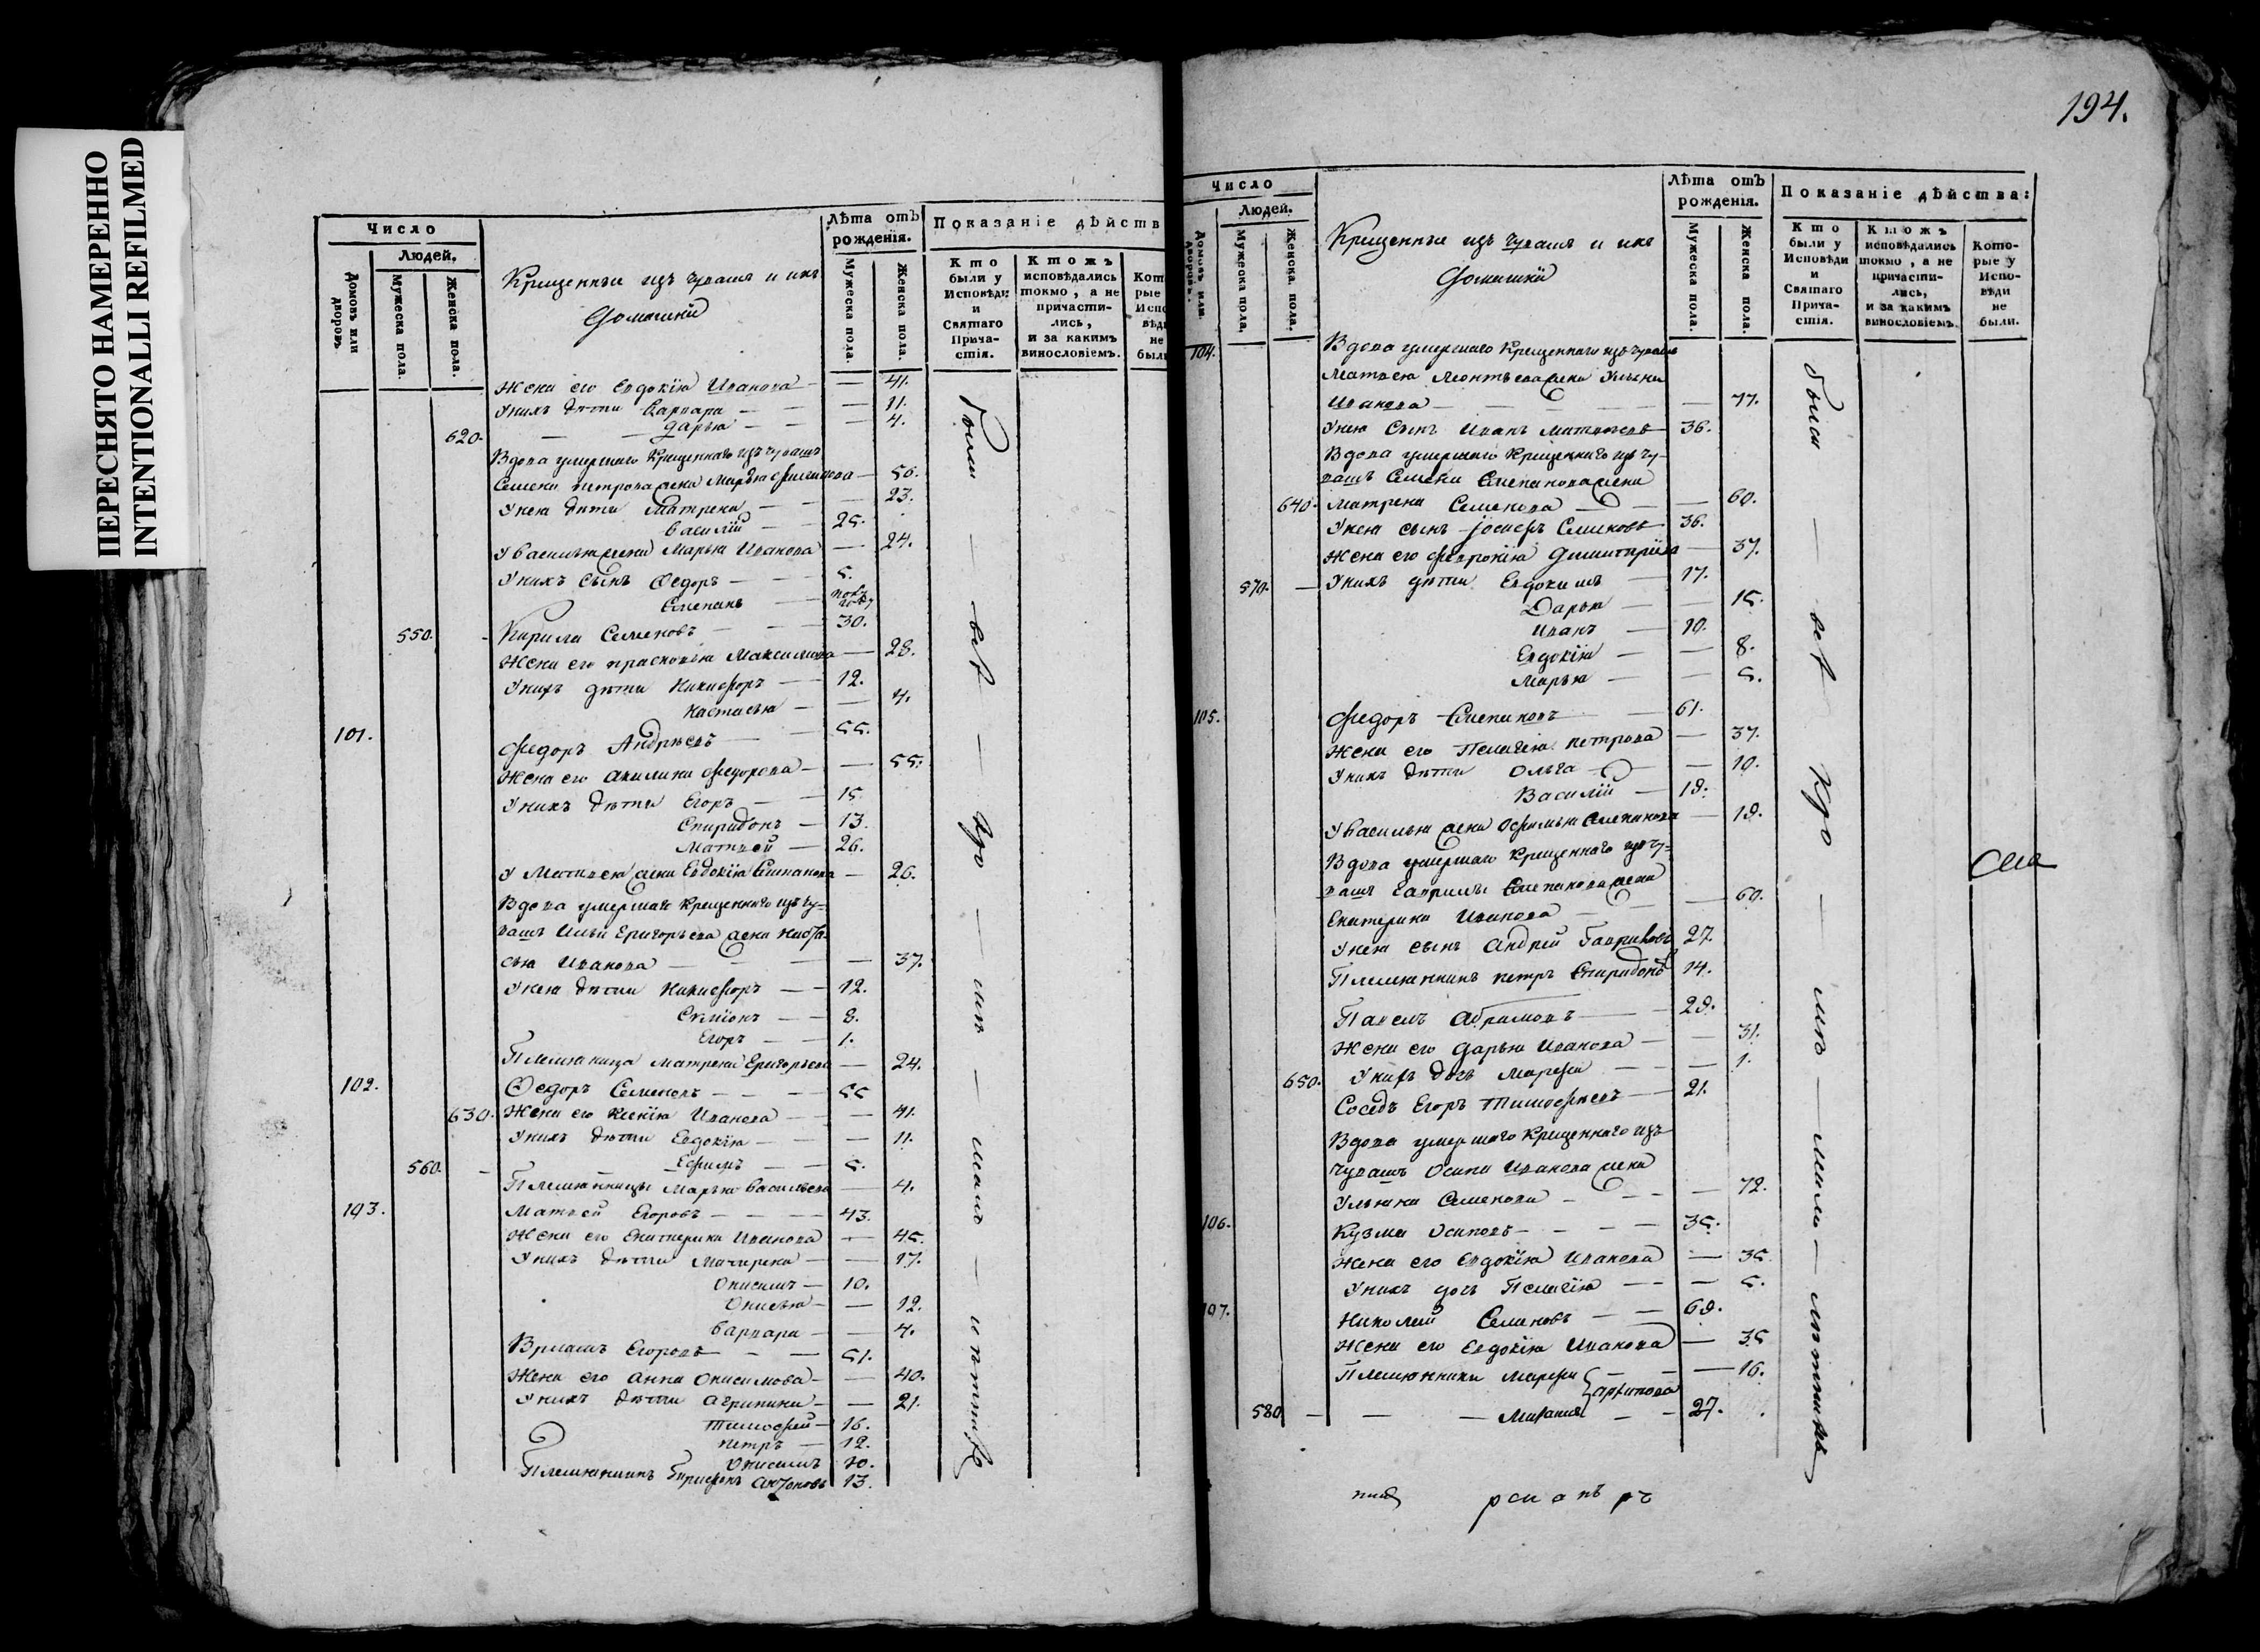 ПЕРЕСНЯТО НАМЕРЕННО
INTENTIONALLI REFILMED
194.
Число
Людей.
Домовъ или дворовъ.
Мужеска пола.
Женска пола.
Крещенныи изъ чувашъ и ихъ
домашнiи
Лѣта отъ рожденiя.
Мужеска пола.
Женска пола.
Показанiе дѣйств
Кто были у Исповѣди и Святаго Причастiя.
Ктожъ исповѣдались токмо, а не причастились, и за какимъ винословiемъ.
Жена его Евдокiя Иванова — 41.
У нихъ дѣти Варвара — 11.
620. Дарья — 4.
Вдова умершаго Крещеннаго изъ чувашъ
Семена Петрова жена Марья Филипова — 50.
У нея дѣти Матрена — 23.
Василiй — 25.
У Василья жена Марья Иванова — 24.
У нихъ сынъ Ѳедоръ — 5.
Степанъ —
550. Кирила Семеновъ — 30.
Жена его Прасковья Максимова — 28.
У нихъ дѣти Никифоръ — 12.
Настасья — 4.
101. Федоръ Андрѣевъ — 55.
Жена его Акилина Федорова — 55.
У нихъ дѣти Егоръ — 15.
Спиридонъ — 13.
Матвей — 26.
У Матвея жена Евдокiя Степанова — 26.
Вдова умершаго Крещеннаго изъ чу-
вашъ Ильи Григорьева жена Наста-
сья Иванова — 37.
У нея дѣти Никифоръ — 12.
Симiонъ — 8.
Егоръ — 1.
Племяница Матрена Григорьева — 24.
102. Ѳедоръ Семеновъ — 55
630. Жена его Ксенiя Иванова — 41.
У нихъ дѣти Евдокiя — 11.
560. Ефимъ — 5.
Племянница Марья Васильева — 4.
103. Матвей Егоровъ — 43.
Жена его Екатерина Иванова — 45.
У нихъ дѣти Матрена — 17.
Онисимъ — 10.
Онисья — 12.
Варвара — 4.
Егоровъ — 51.
Жена его Анна Онисимова — 40.
У нихъ дѣти Агрипина — 21.
Тимофей — 16.
Петръ — 12.
Онисимъ 10.
Племянникъ Антоновъ 13.
были — всѣ —
Число
Людей.
Домовъ или дворовъ.
Мужеска пола.
Женска пола.
Крещенныи изъ чувашъ и ихъ
домашнiи
Лѣта отъ рожденiя.
Мужеска пола.
Женска пола.
Показанiе дѣйства:
Кто были у Исповѣди и Святаго Причастiя.
Ктожъ исповѣдались токмо, а не причастились, и за какимъ винословiемъ.
Которые у Исповѣди не были.
104. Вдова умершаго Крещеннаго изъ чувашъ
Матвея Леонтьева жена Ульяна
Иванова — 77.
У нея сынъ Иванъ Матвѣевъ — 36.
Вдова умершаго Крещеннаго изъ чу-
вашъ Семена Степанова жена
640. Матрена Семенова — 60.
У нея сынъ Iосифъ Семеновъ — 36.
Жена его Феврокiя Димитрiева — 37.
570. У нихъ дѣти Евдокимъ — 17.
Дарья — 15.
Иванъ — 10.
Евдокiя — 8.
Марья — 5.
105. Федоръ Степановъ — 61.
Жена его Пелагiя Петрова — 37.
У нихъ дѣти Ольга — 10.
Василiй — 18.
У Василья жена Офимья Степанова — 18.
Вдова умершаго Крещеннаго изъ чу-
вашъ Гаврилы Степанова жена
Екатерина Иванова — 60.
У нея сынъ Андрей Гавриловъ 27.
Племянникъ Петръ Спиридоновъ 14.
Павелъ Абрамовъ — 28.
Жена его Дарья Иванова — 31.
650. У нихъ дочь Марфа — 1.
Соседъ Егоръ Тимофѣевъ — 21.
Вдова умершаго Крещеннаго изъ
чувашъ Осипа Иванова жена
Ульяна Семенова — 72.
106. Кузма Осиповъ — 35.
Жена его Евдокiя Иванова — 35.
У нихъ дочь Пелагiя — 5.
107. Николай Семеновъ — 68.
Жена его Евдокiя Иванова — 35
Племянники Марфа — 16.
Архипова
580 — 27.
были — всѣ —